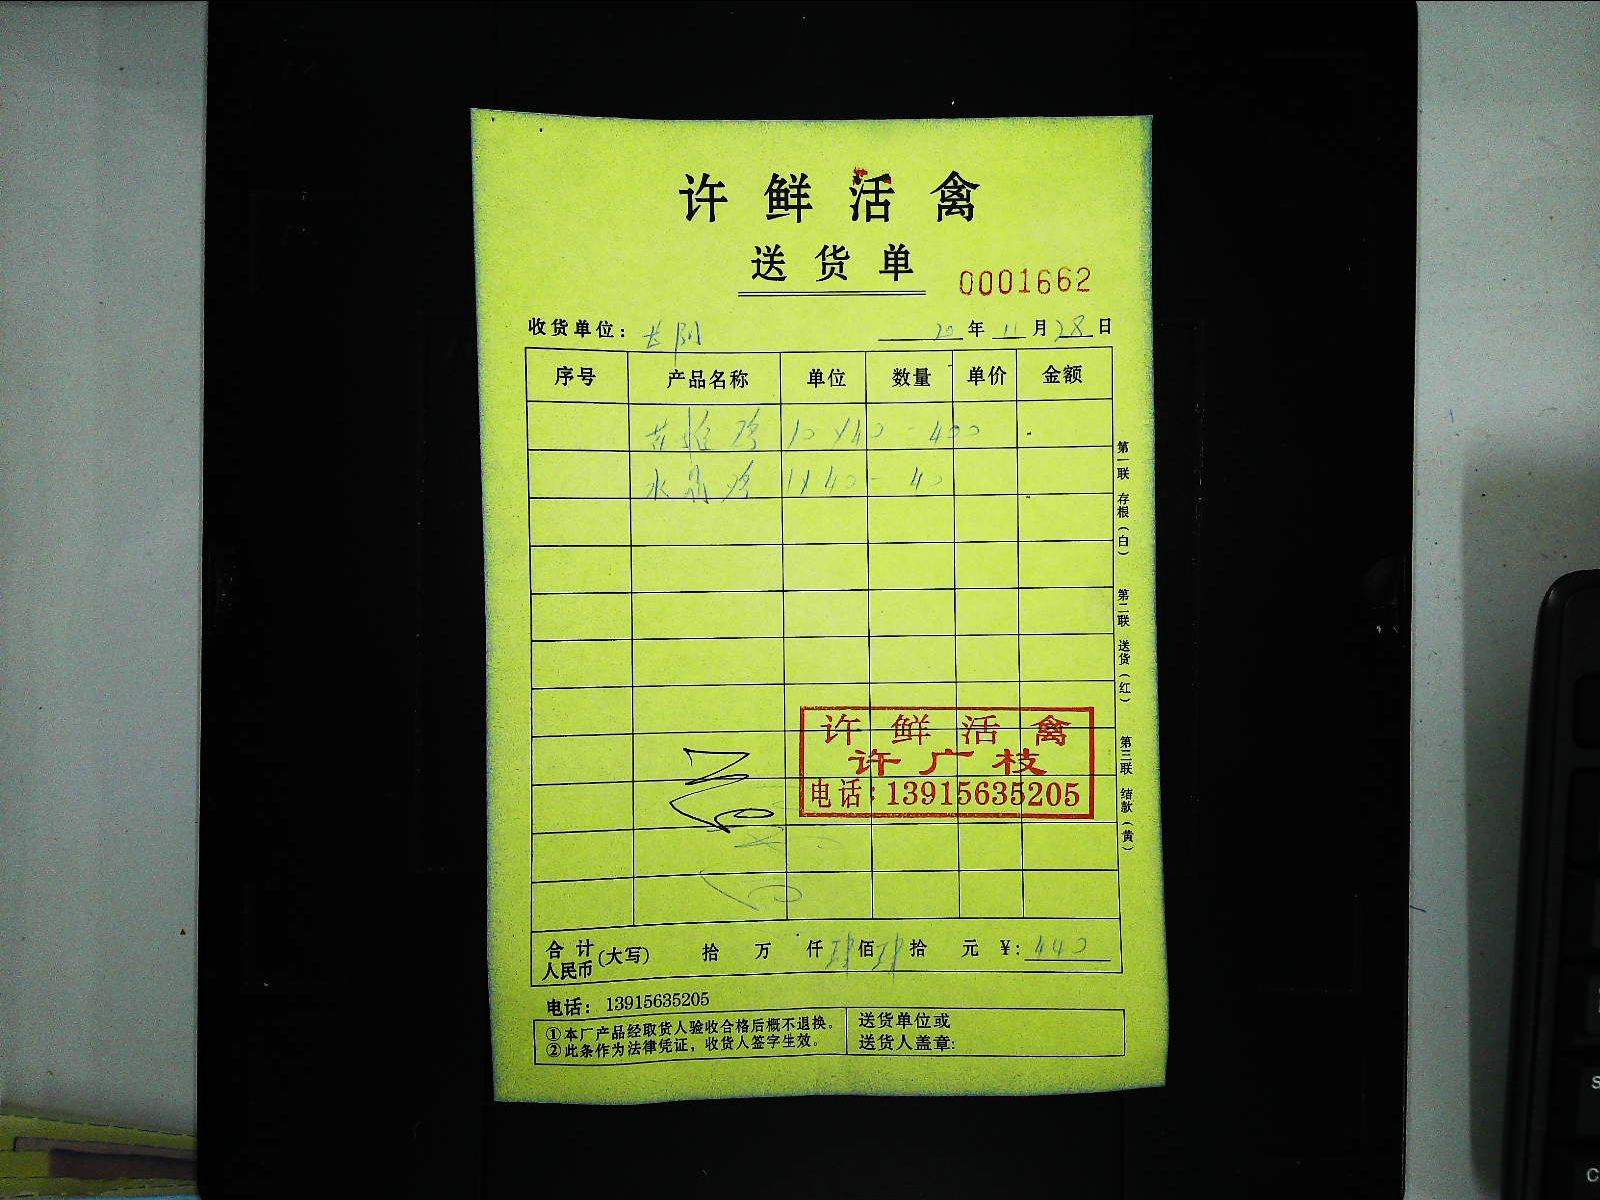 许鲜活禽
送货单
0001662
收货单位：长阴 20年11月28日
序号 产品名称 单位 数量 单价 金额
鸡 10×40-400
水晶鸡 1×40-40
第一联 存根（白）
第二联 送货（红）
第三联 结款（黄）
许鲜活禽
许广枝
电话：13915635205
合计人民币（大写） 拾 万 仟肆佰肆拾 元 ¥：440
电话：13915635205
①本厂产品经取货人验收合格后概不退换。
②此条作为法律凭证，收货人签字生效。
送货单位或
送货人盖章: